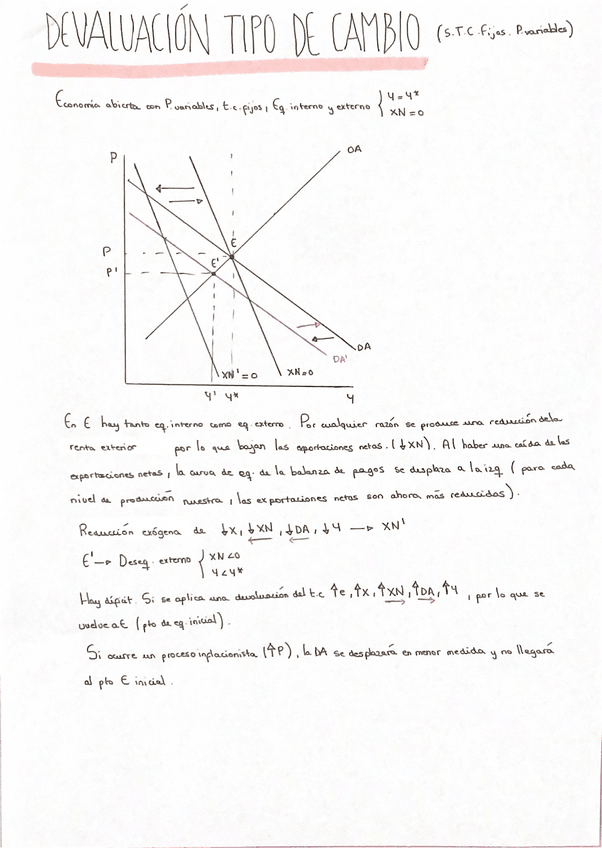 DEVALUACIÓN TIPO DE CAMBIO (S.T.C. Fijos. P.variables)
Economía abierta con P.variables, t.c. fijos, Eq. interno y externo { Y = Y*
XN = 0
P
OA
P
E
P'
E'
DA
DA'
XN' = 0
XN=0
Y' Y* Y
En E hay tanto eq. interno como eq. externo. Por cualquier razón se produce una reducción de la
renta exterior por lo que bajan las exportaciones netas. (↓XN). Al haber una caída de las
exportaciones netas, la curva de eq. de la balanza de pagos se desplaza a la izq (para cada
nivel de producción nuestra, las exportaciones netas son ahora más reducidas).
Reducción exógena de ↓X, ↓XN, ↓DA, ↓Y → XN'
E' → Deseq. externo { XN<0
Y<Y*
Hay déficit. Si se aplica una devaluación del t.c ↑e, ↑X, ↑XN, ↑DA, ↑Y, por lo que se
vuelve a E (pto de eq. inicial).
Si ocurre un proceso inflacionista (↑P), la DA se desplazará en menor medida y no llegará
al pto E inicial.